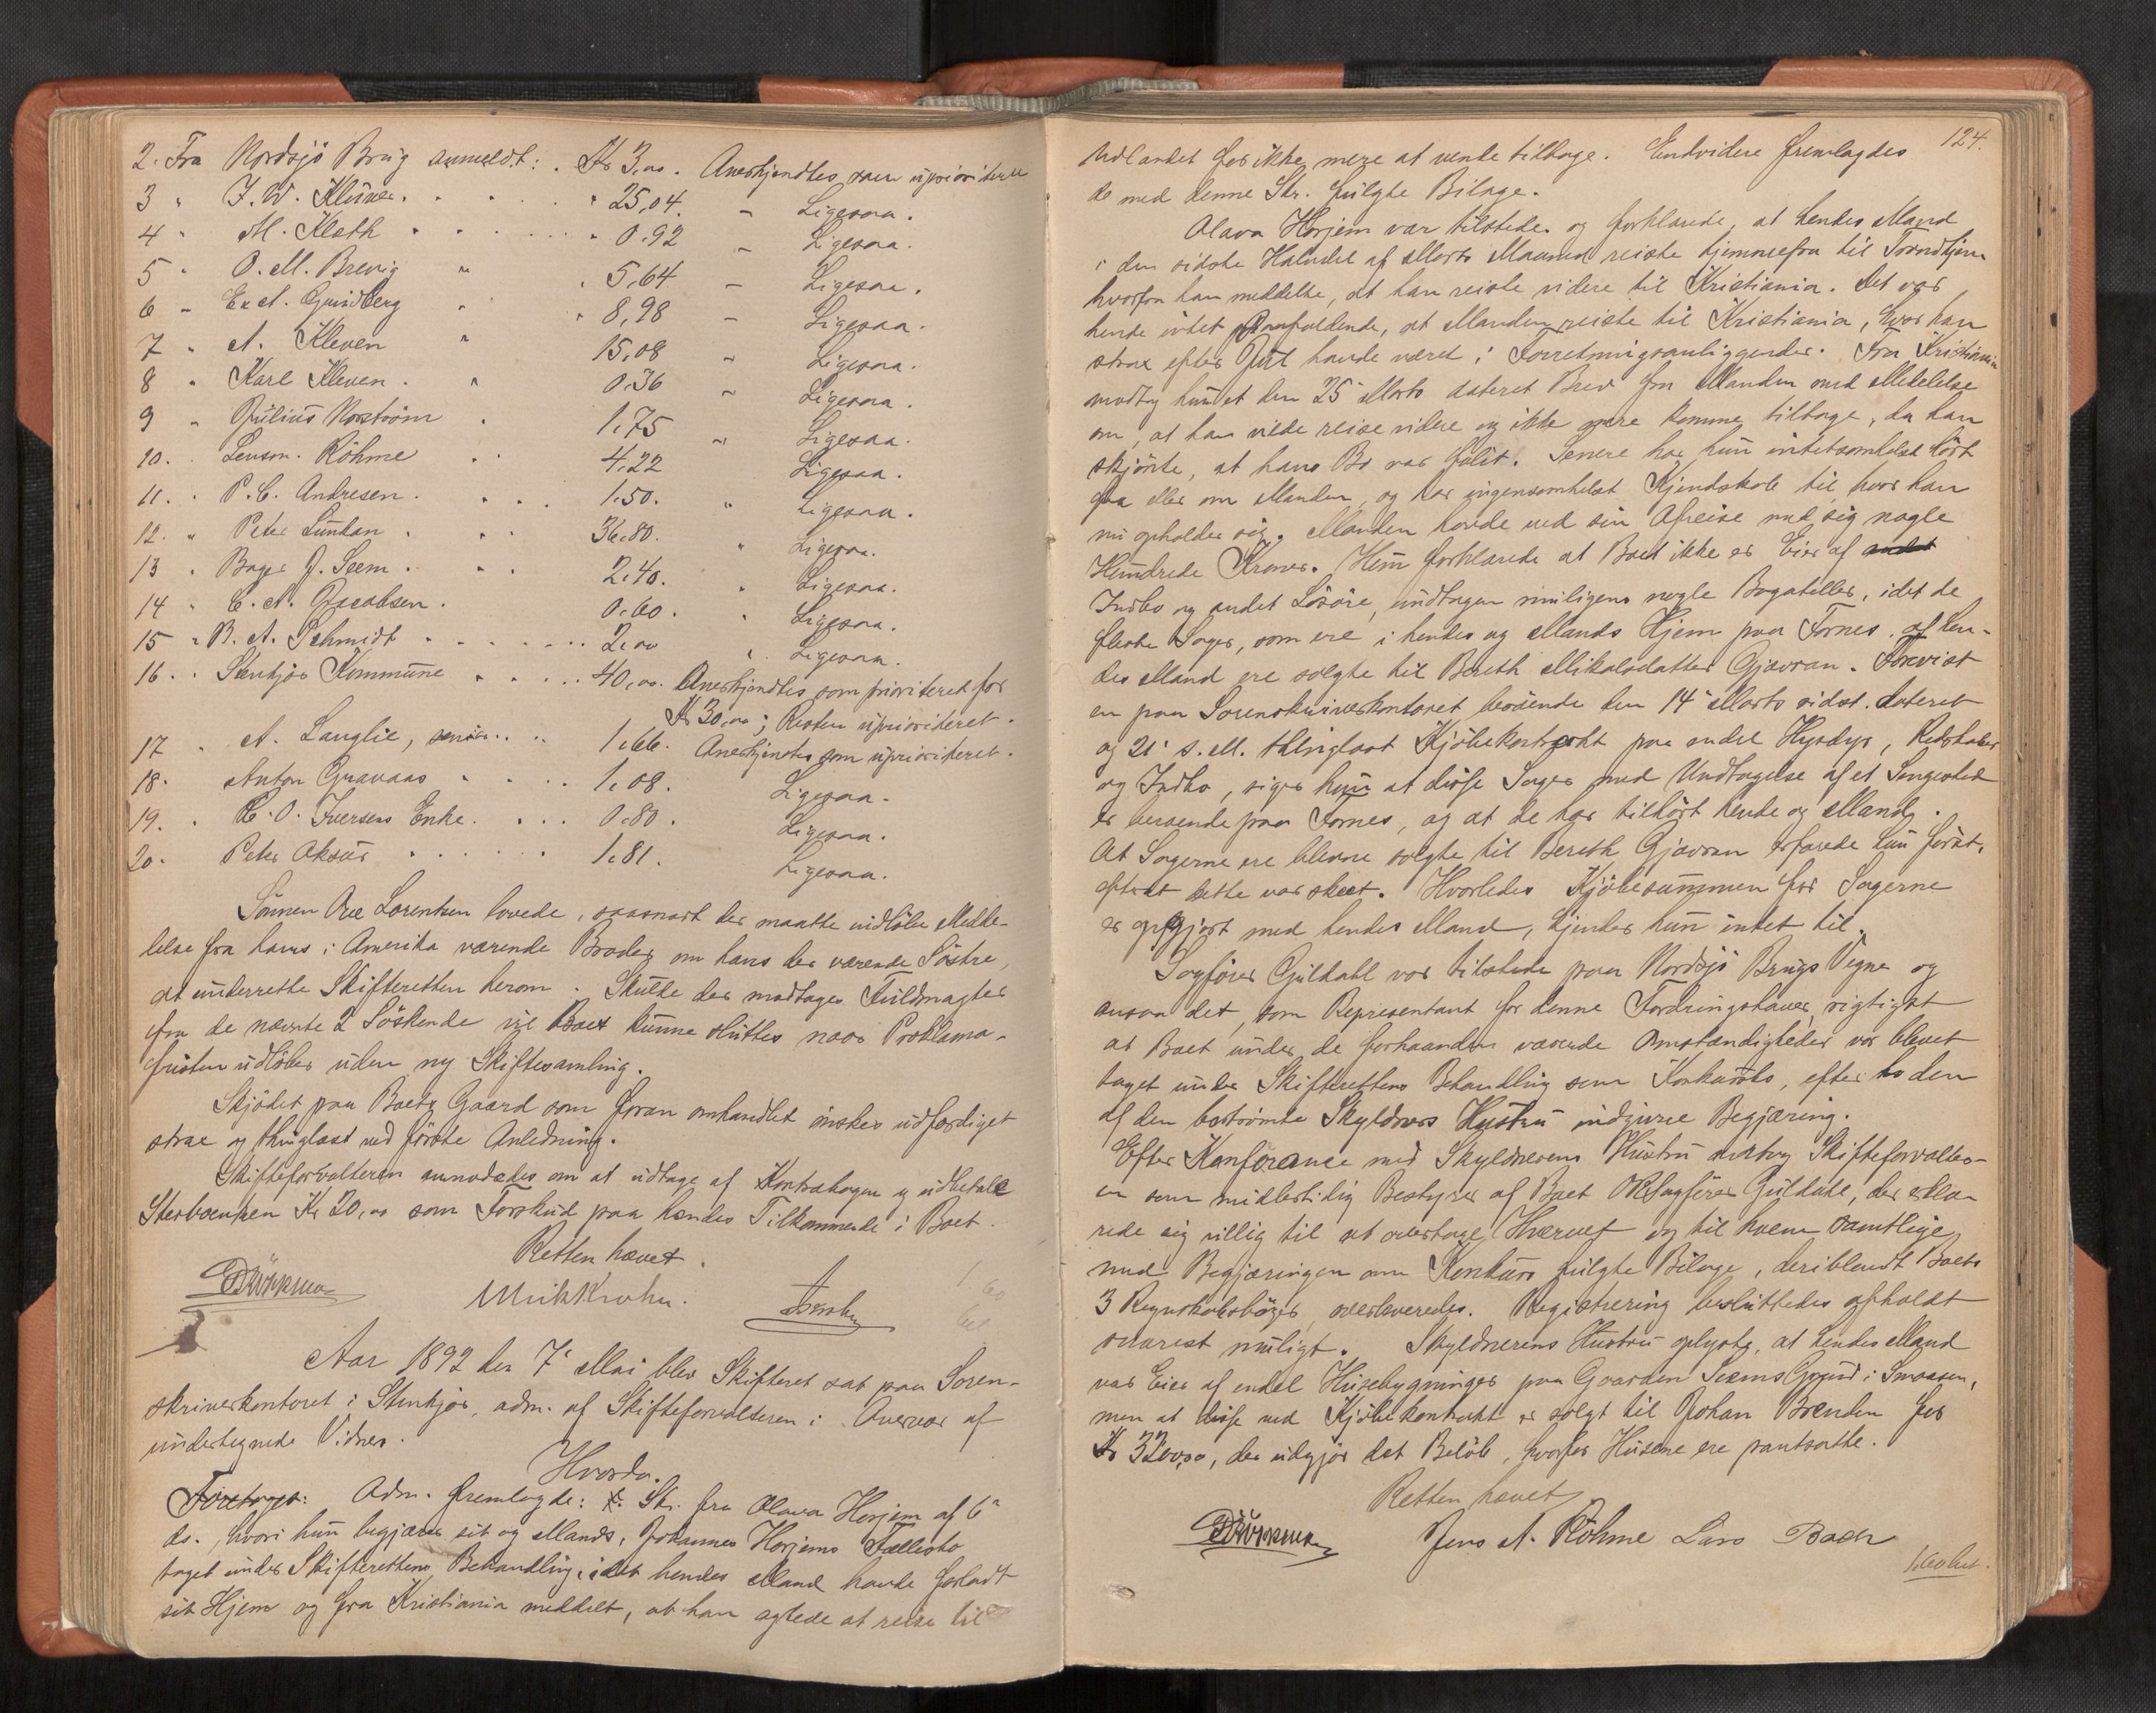 2. Fra Nordsjö Brug anmeldt: . Kr 3,00. Anerkjendtes som uprioriteret
3 " J. W. Klüver. . . . " 25,04. – Ligesaa.
4 " M. Kloth . . . . . " 0.92 – Ligesaa.
5 " O. M. Brevig " . 5,64 – Ligesaa.
6 " E. A. Grindberg " " 8,98 – Ligesaa.
7 " A. Kleven " 15,08 " Ligesaa.
8 " Karl Kleven . " 0.36 " Ligesaa.
9 " Julius Norström . 1.75 " Ligesaa.
10. . Röhme . . 4.22 Ligesaa.
11. . P. C. Andresen . . . . 1.50. " Ligesaa.
12. " Peter Sundan . . . 36.80. " Ligesaa.
13 " Bager J. Seem . . . 2.40. " Ligesaa.
14 " C. A. Jacobsen. 0.60. " Ligesaa.
15 " B. A. Schmidt . . . . . 2,00 " Ligesaa.
16. . Stenkjær Kommune . . . . 40,00. Anerkjendtes som prioriteret for
Kr 30,00; Resten uprioriteret.
17 " A. Langlie, senior . . 1.66. Anerkjendtes som uprioriteret.
18. Anton Gravaas . . . . 1.08. Ligesaa.
19. . C. O. Iversens Enke. . . . 0.80. Ligesaa.
20. Peter Aksür . . . . . . 1.81. Ligesaa.
Sönnen Ole Lorentsen lovede, saasnart der maatte indlöbe Medde-
lelse fra hans i Amerika værende Broder om hans der værende Söstre,
at underrette Skifteretten herom. Skulde der modtages Fuldmagter
fra de nævnte 2 Söskende vil Boet kunne sluttes naar Proklama-
fristen udlöber uden ny Skiftesamling.
Skjödet paa Boets Gaard som foran omhandlet önskes udfærdiget
strax og thinglæst ved förste Anledning.
Skifteforvalteren anmodedes om at udtage af Kontrabogen og udbetale
Sterbænken Kr 20,00 som Forskud paa hendes Tilkommende i Boet.
Retten hævet.
Aar 1892 den 7de Mai blev Skifteret sat paa Soren-
skriverkontoret i Stenkjær, adm. af Skifteforvalteren i Overvær af
undertegnede Vidner.
Hvorda
Foretoges: Adm. fremlagde: Skr. fra Olava Horjem af 6te
ds., hvori hun begjærer sit og Mands, Johannes Horjems Fællesbo
taget under Skifterettens Behandling, idet hendes Mand havde forladt
sit Hjem og fra Kristiania meddelt, at han agtede at reise til
124.
Udlandet for ikke mere at vende tilbage. Endvidere fremlagdes
de med denne Skr. fulgte Bilage.
Olava Horjem var tilstede og forklarede, at hendes Mand
i den sidste Halvdel af Marts Maaned reiste hjemmefra til Trondhjem
hvorfra han meddelte, at han reiste videre til Kristiania. Det var
hende intet paafaldende, at Manden reiste til Kristiania, hvor han
strax efter Jul havde været i Forretningsanliggender. Fra Kristiania
modtog hun et den 25 Marts dateret Brev fra Manden med Meddelelse
om, at han vilde reise videre og ikke mere komme tilbage, da han
skjönte, at hans Bo var fallit. Senere har hun intetsomhelst hört
fra eller om Manden, og har ingensomhelst Kjendskab til, hvor han
nu opholder sig. Manden havde ved sin Afreise med sig nogle
Hundrede Kroner. Hun forklarede at Boet ikke er Eier af andet
Indbo og andet Lösöre, undtagen muligens nogle Bagateller, idet de
fleste Sager, som ere i hendes og Mands Hjem paa Fornes, af hen-
des Mand ere solgte til Bereth Mikalsdatter Gjævran. Forevist
en paa Sorenskriverkontoret beroende den 14de Marts sidst. dateret
og 21' s. M. thinglæst Kjöbekontrakt paa endel Husdyr, Redskaber
og Indbo, siger hun at disse Sager med Undtagelse af et Sengested
er beroende paa Fornes, og at de har tilhört hende og Mand.
At Sagerne ere blevne solgte til Bereth Gjævran erfarede hun först,
efterat dette var skeet. Hvorledes Kjöbesummen for Sagerne
er opgjort med hendes Mand, kjender hun intet til.
Sagförer Guldahl var tilstede paa Nordsjö Brugs Vegne og
ansaa det, som Representant for denne Fordringshaver, rigtigst
at Boet under de forhaanden værende Omstændigheder var blevet
taget under Skifterettens Behandling som Konkursbo, efter den
af den bortrömte Skyldners Hustru indgivne Begjæring.
Efter Konferance med Skyldnerens Hustru antog Skifteforvalter-
en som midlertidig Bestyrer af Boet ORSagförer Guldahl, der erklæ-
rede sig villig til at overtage Hvervet og til hvem samtlige
med Begjæringen om Konkurs fulgte Bilage, deriblandt Boets
3 Regnskabsböger, overleveredes. Registrering besluttedes afholdt
snarest muligt. Skyldnerens Hustru oplyste, at hendes Mand
var Eier af endel Husebygninger paa Gaarden Seems Grund i Snaasen,
men at disse ved Kjöbekontrakt er solgt til Johan Brenden for
Kr 3200,00, der udgjör det Belöb, hvorfor Husene ere pantsatte.
Retten hævet
Jens A. Röhme Lars Bach